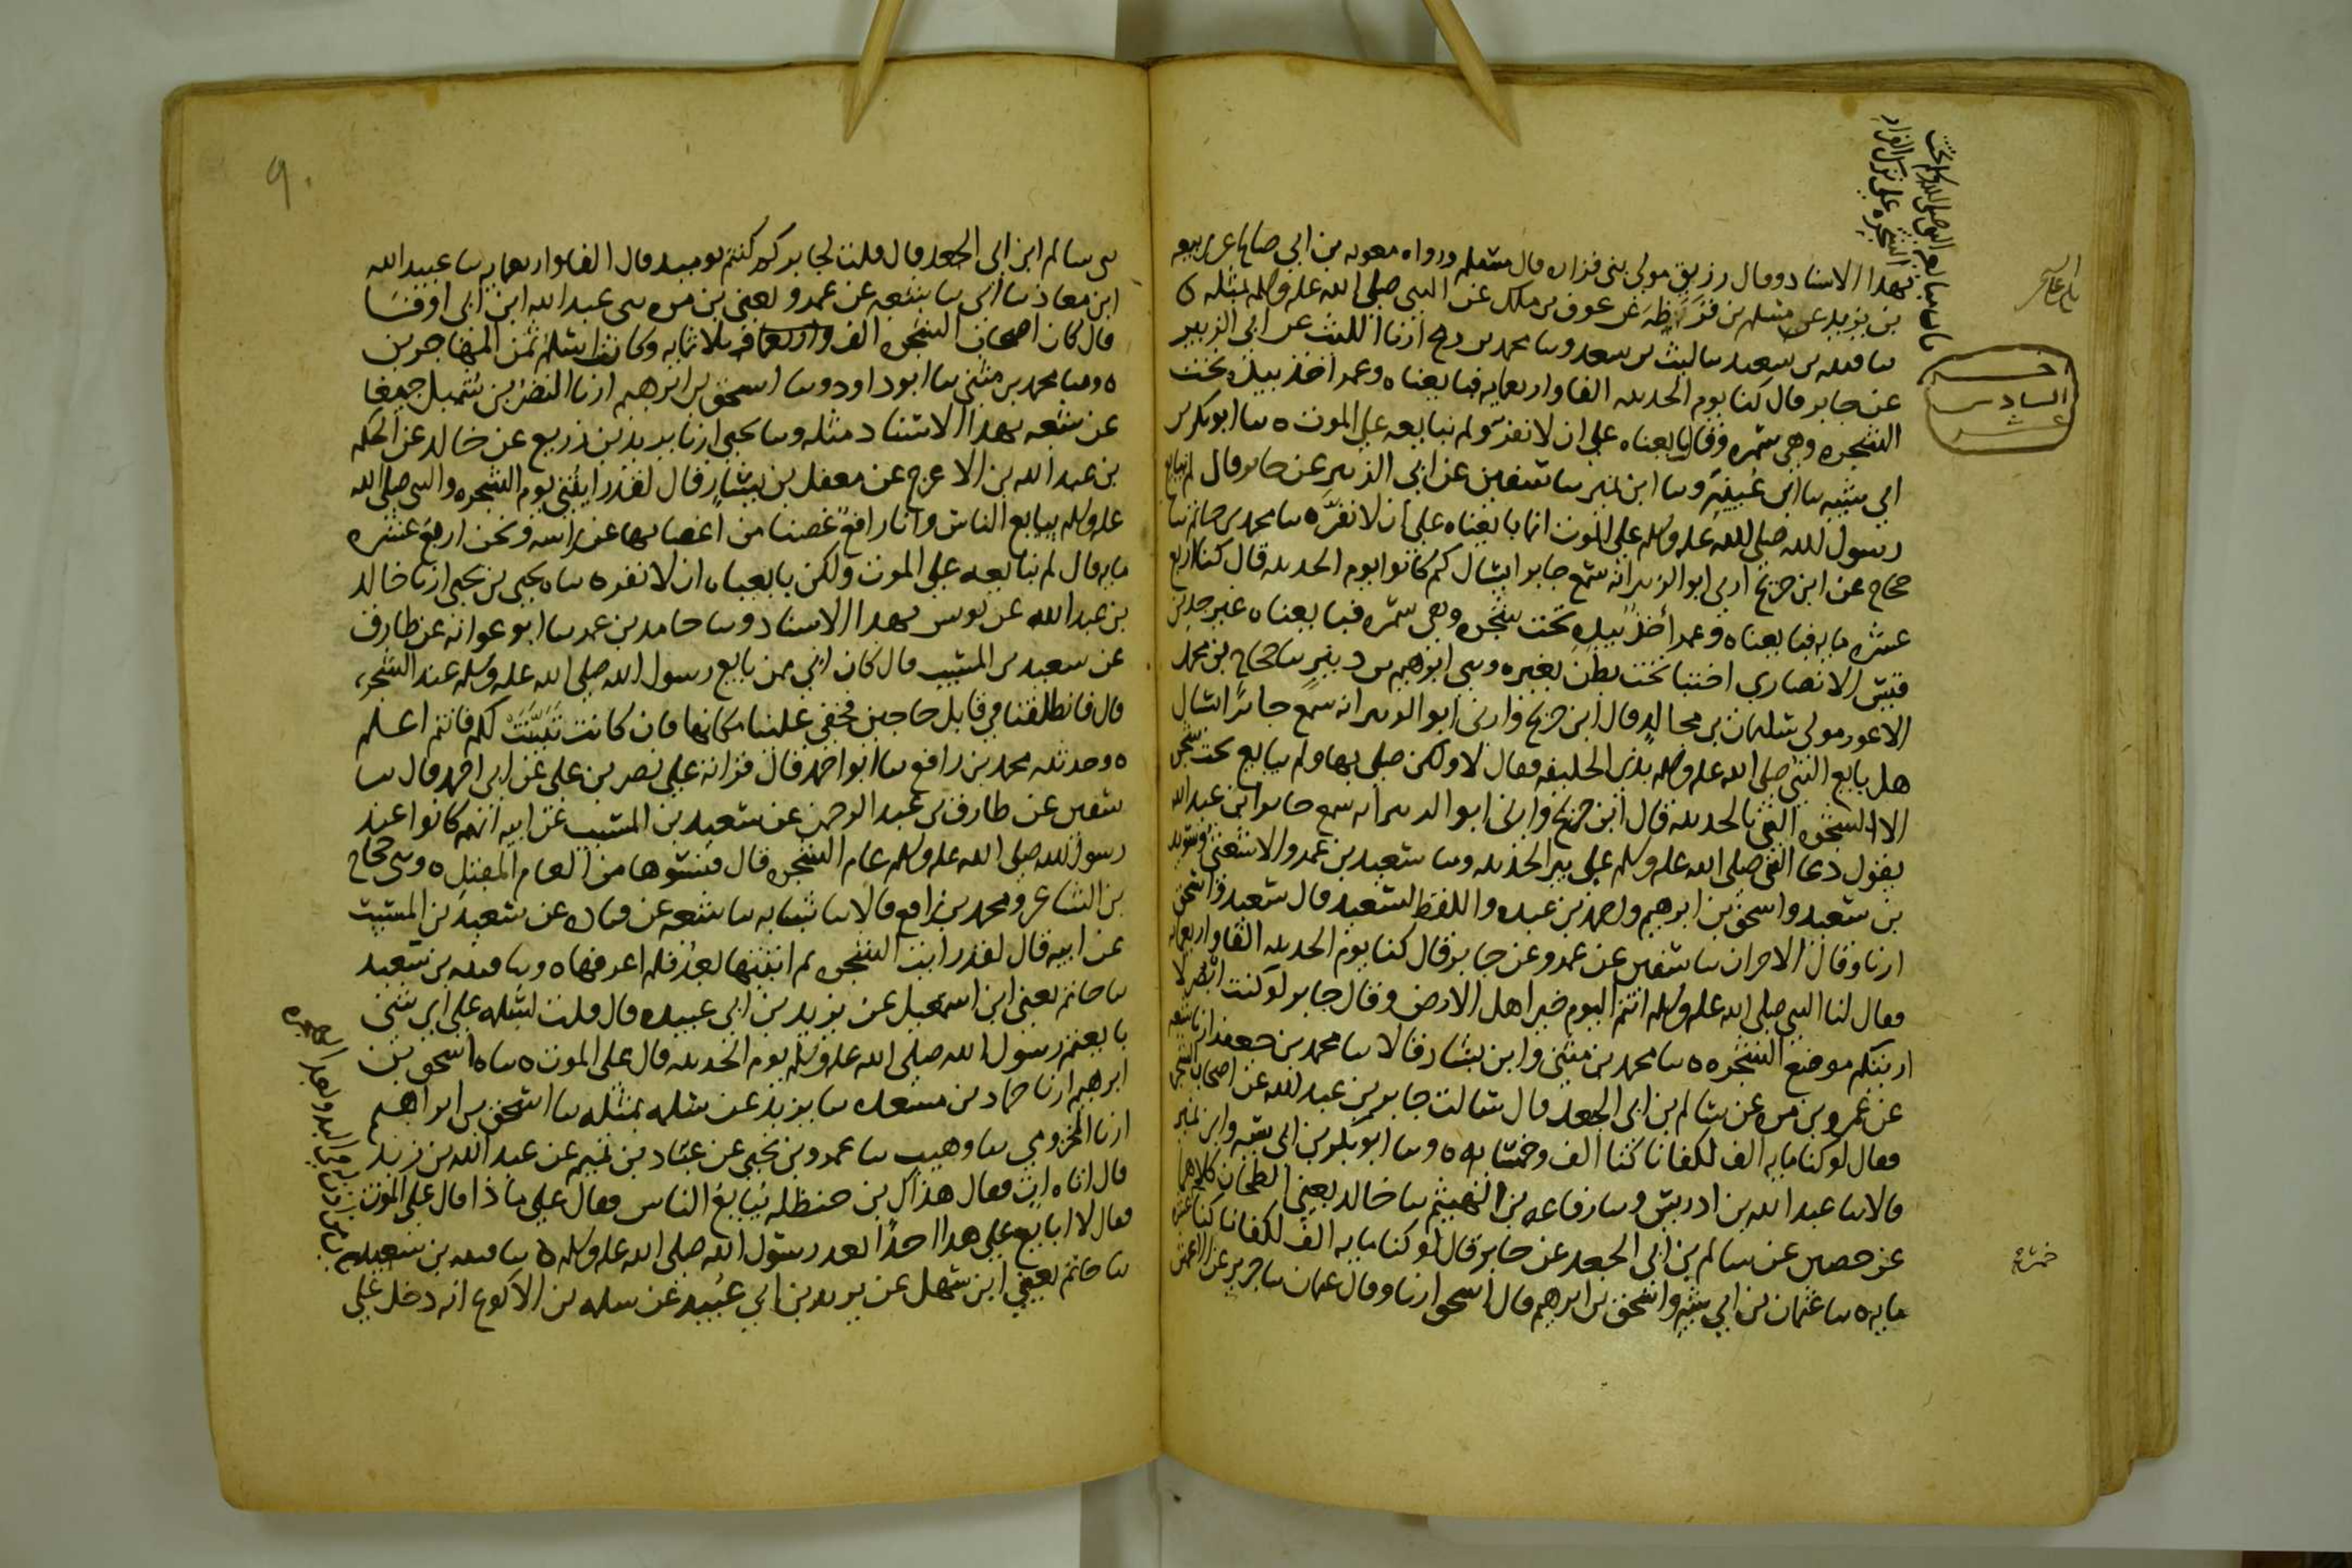 بهدا الاسناد وقال رزيق مولى بنى فزاره قال مسلم ورواه معويه بن ابي صالح عن ربيعه
بن يزيد عن مسلم بن قرظه عن عوف بن ملك عن النبي صلى الله عليه وسلم بمثله
سا قتيبه بن سعيد سا ليث بن سعد وسا محمد بن رمح ارنا الليث عن ابى الزبير
عن جابر قال كنا يوم الحديبيه الفا واربعمايه فبايعناه وعمر اخذ بيده تحت
الشجره وهي سمره وقال بايعناه على ان لا نفر ولم نبايعه على الموت ه سا ابو بكر بن
ابي شيبه سا ابن عيينة وسا ابن نمير سا سفين عن ابي الزبير عن جابر قال لم نبايع
رسول الله صلى الله عليه وسلم على الموت انما بايعناه على ان لا نفر ه سا محمد بن حاتم سا
حجاج عن ابن جريج ارنى ابو الزبير انه سمع جابرا يسال كم كانوا يوم الحديبيه قال كنا اربع
عشره مايه فبايعناه وعمر أخذ بيده تحت شجره وهي سمره فبايعناه غير جد بن
قيس الانصاري اختبا تحت بطن بعيره وسى ابرهيم بن دينر سا حجاج بن محمد
الاعور مولى سليمان بن مجالد قال ابن جريج وارنى ابو الزبير انه سمع جابرا يسال
هل بايع النبي صلى الله عليه وسلم بذى الحليفه فقال لا ولكن صلى بها ولم يبايع تحت شجره
الا الشجره التي بالحديبيه قال ابن جريج وارنى ابو الزبير انه سمع جابر ابن عبد الله
يقول دعا النبي صلى الله عليه وسلم على بير الحديبيه وسا سعيد بن عمرو الاشعثي وسويد
بن سعيد واسحق بن ابرهيم واحمد بن عبده واللفظ لسعيد قال سعيد واسحق
ارنا وقال الاخران سا سفين عن عمرو عن جابر قال كنا يوم الحديبيه الفا واربعمايه
فقال لنا النبي صلى الله عليه وسلم انتم اليوم خير اهل الارض وقال جابر لو كنت ابصر لا
اريتكم موضع الشجره ه سا محمد بن مثنى وابن بشار قالا سا محمد بن جعفر ارنا شعبه
عن عمرو بن مره عن سالم بن ابى الجعد قال سالت جابر بن عبد الله عن اصحاب الشجره
فقال لو كنا مايه الف لكفانا كنا الف وخمسمايه ه وسا ابو بكر بن ابى شيبه وابن نمير
قالا سا عبد الله بن ادريس وسا رفاعه بن الهيثم سا خالد يعني الطحان كلاهما
عن حصين عن سالم بن ابى الجعد عن جابر قال لو كنا مايه الف لكفانا كنا
مايه ه سا عثمان بن ابي شيبه واسحق بن ابرهيم قال اسحق ارنا وقال عثمان سا جرير عن الاعمش
السادس
عشر
سى سالم ابن ابى الجعد قال قلت لجابر كم كنتم يوميد قال الفا واربعمايه سا عبيد الله
ابن معاذ سا ابى سا شعبه عن عمرو يعنى بن مره سى عبد الله ابن ابى اوفى
قال كان اصحاب الشجره الف وثلاثمايه وكانت اسلم ثمن المهاجرين
ه وسا محمد بن مثنى سا ابو داود وسا اسحق بن ابرهيم ارنا النضر بن شميل جميعا
عن شعبه بهدا الاسناد مثله وسا يحيى ارنا يزيد بن زريع عن خالد عن الحكم
بن عبد الله بن الاعرج عن معقل بن يسار قال لقد رايتني يوم الشجره والنبي صلى الله
عليه وسلم يبايع الناس وانا رافع غصنا من اغصانها عن راسه ونحن اربع عشره
مايه قال لم نبايعه على الموت ولكن بايعناه ان لا نفر ه سا ه يحيى بن يحيى ارنا خالد
بن عبد الله عن يونس بهدا الاسناد وسا حامد بن عمر سا ابو عوانه عن طارق
عن سعيد بن المسيب قال كان ابي ممن بايع رسول الله صلى الله عليه وسلم عند الشجره
قال فانطلقنا في قابل حاجين فخفي علينا مكانها فان كانت تبينت لكم فانتم اعلم
ه وحدثنيه محمد بن رافع سا ابو احمد قال قراته على نصر بن على عن ابى احمد قال سا
سفين عن طارق بن عبد الرحمن عن سعيد بن المسيب عن ابيه انهم كانوا عند
رسول الله صلى الله عليه وسلم عام الشجره قال فنسوها من العام المقبل ه وسى حجاج
بن الشاعر ومحمد بن رافع قالا سا شبابه سا شعبه عن قتاده عن سعيد بن المسيب
عن ابيه قال لقد رايت الشجره ثم اتيتها بعد فلم اعرفها ه وسا قتيبه بن سعيد
سا حاتم يعنى ابن اسمعيل عن يزيد بن ابى عبيده قال قلت لسلمه على اى شى
بايعتم رسول الله صلى الله عليه وسلم يوم الحديبيه قال على الموت ه سا ه اسحق بن
ابرهيم ارنا حماد بن مسعده سا يزيد عن سلمه بمثله سا اسحق بن ابراهيم
ارنا المخزومي سا وهيب سا عمرو بن يحيى عن عباد بن تميم عن عبد الله بن زيد
قال اتاه ات فقال هذاك بن حنظله يبايع الناس فقال على ماذا قال على الموت
فقال لا ابايع على هدا احدا بعد رسول الله صلى الله عليه وسلم ه سا قتيبه بن سعيد
سا حاتم يعني ابن سهل عن يزيد بن ابي عبيد عن سلمه بن الاكوع انه دخل على